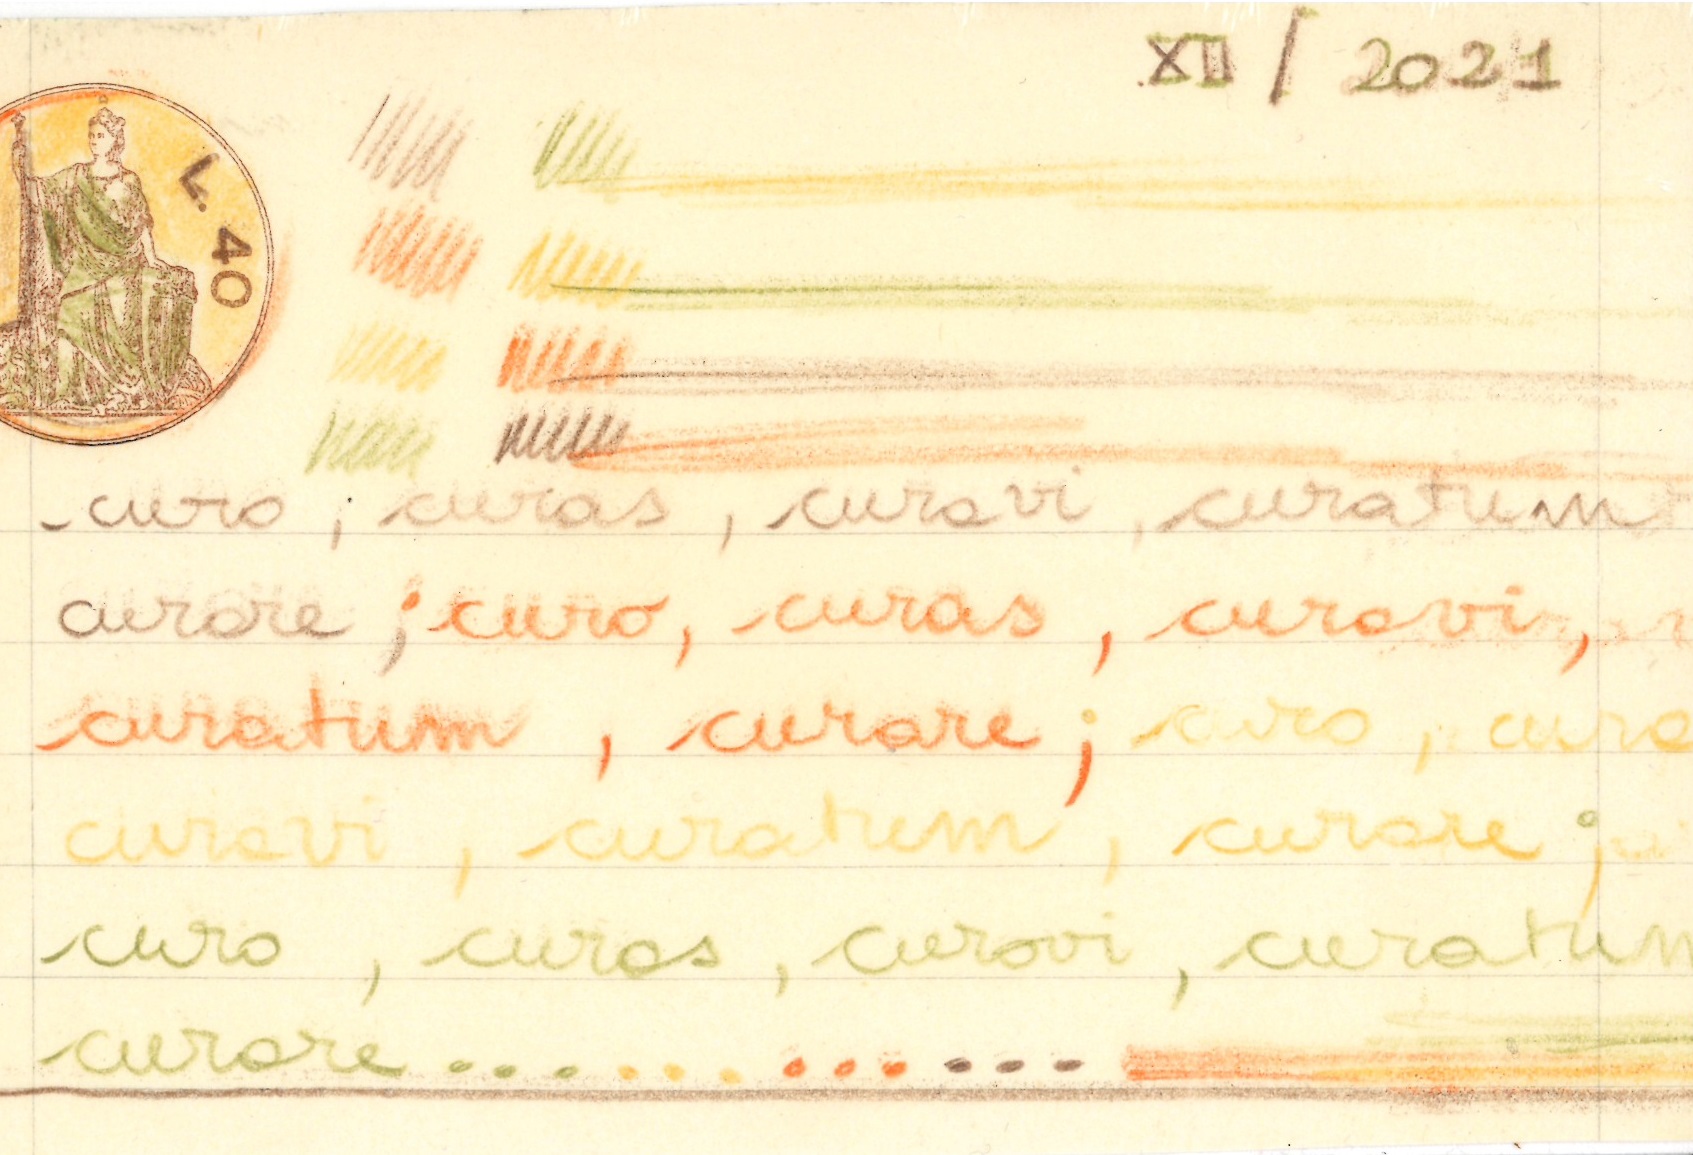 XII / 2021
L. 40
curo ; curas , curavi , curatum
curare ; curo, curas , curavi,
curatum , curare ; curo , cura
curavi , curatum , curare ;
curo , curas , curavi , curatum
curare ............